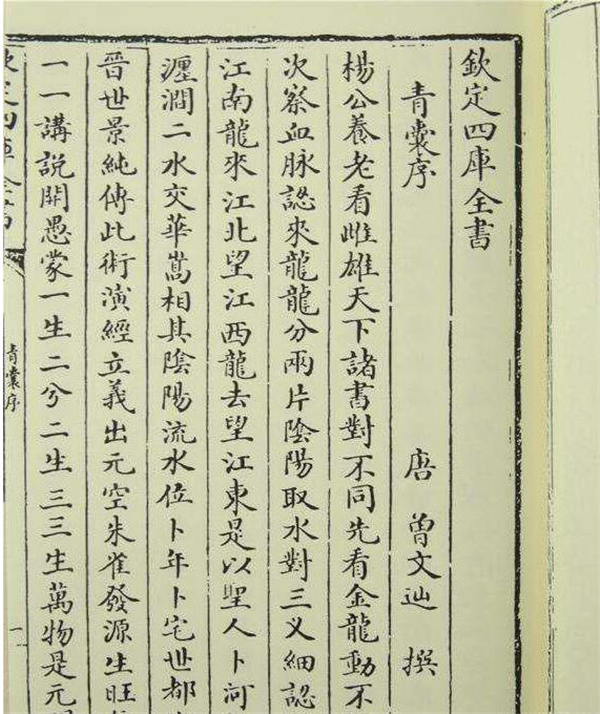 欽定四庫全書
青囊序
唐 曾文辿 撰
楊公養老看雌雄天下諸書對不同先看金龍動不
次察血脉認來龍龍分兩片陰陽取水對三义細認
江南龍來江北望江西龍去望江東是以聖人卜河
瀍澗二水交華嵩相其陰陽流水位卜年卜宅世都
晉世景純傳此術演經立義出元空朱雀發源生旺
一一講說開愚蒙一生二兮二生三三生萬物是元
青囊序
一